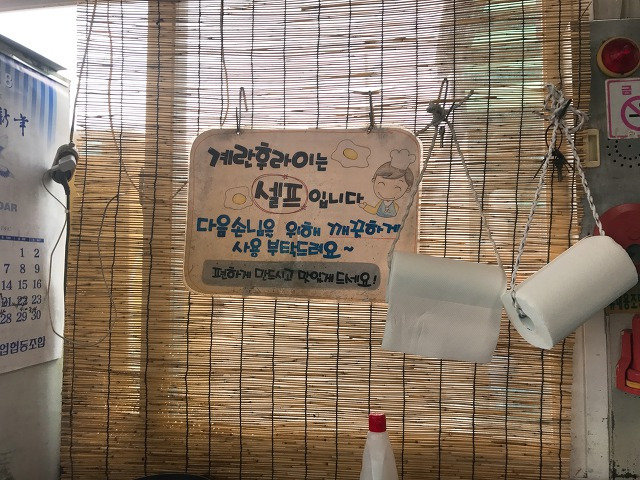 계란후라이는
셀프입니다
다음손님을 위해 깨끗하게
사용 부탁드려요~
편하게 만드시고 맛있게 드세요!
DAR
1 2
7 8 9
14 15 16
21 22 23
28 29 30
업협동조합
금